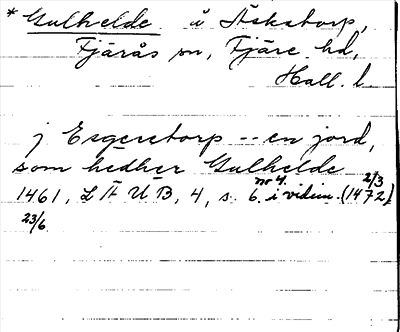 * Gulhelde å Äskatorp,
Fjärås sn, Fjäre hd,
Hall. l.
j Esgeretorp -- en jord,
som hedher Gulhelde
1461, L Ä U B, 4, s. 6. nr 4. i vidim. (1472 2/3)
23/6